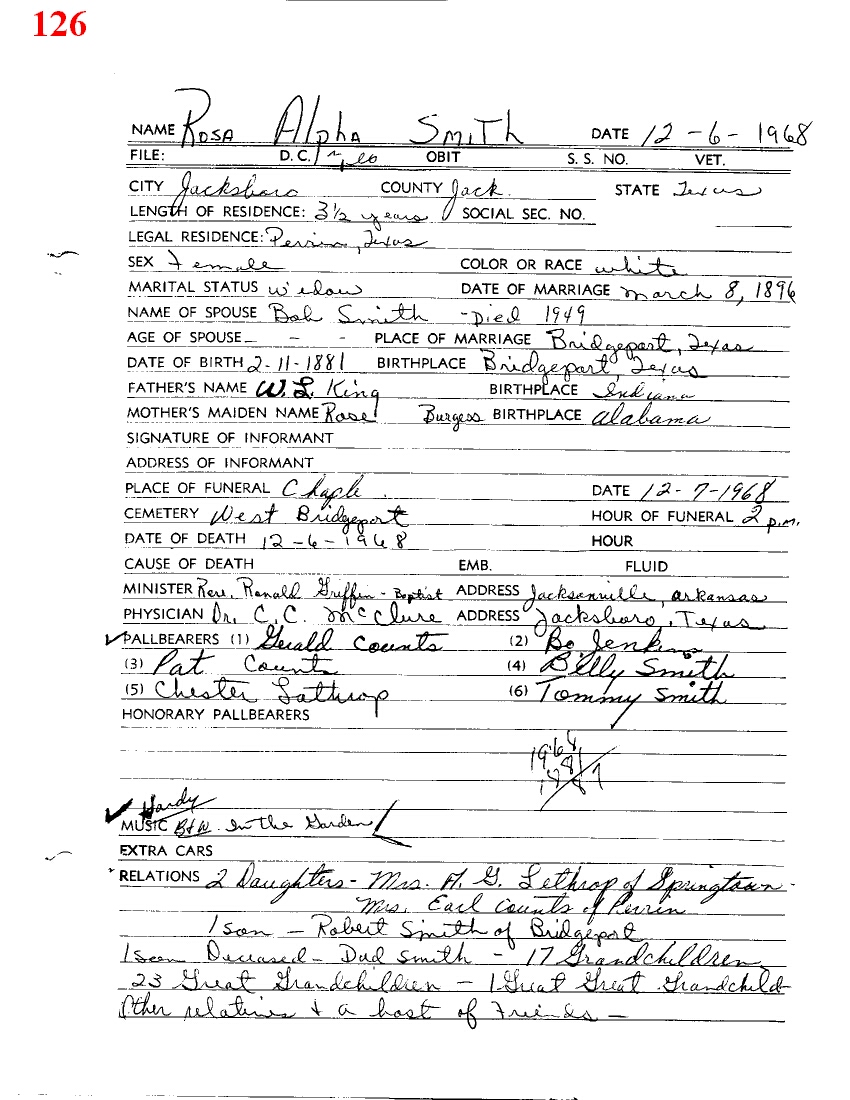 126
NAME Rosa Alpha Smith DATE 12-6-1968
FILE: D.C. OBIT S. S. NO. VET.
CITY Jacksboro COUNTY Jack. STATE Texas
LENGTH OF RESIDENCE: 3½ years SOCIAL SEC. NO.
LEGAL RESIDENCE: Perrin, Texas
SEX Female COLOR OR RACE white
MARITAL STATUS widow DATE OF MARRIAGE March 8, 1896
NAME OF SPOUSE Bob Smith - Died 1949
AGE OF SPOUSE - - - PLACE OF MARRIAGE Bridgeport, Texas
DATE OF BIRTH 2-11-1881 BIRTHPLACE Bridgeport, Texas
FATHER'S NAME W. L. King BIRTHPLACE Indiana
MOTHER'S MAIDEN NAME Rose Burgess BIRTHPLACE Alabama
SIGNATURE OF INFORMANT
ADDRESS OF INFORMANT
PLACE OF FUNERAL Chaple DATE 12-7-1968
CEMETERY West Bridgeport HOUR OF FUNERAL 2 p.m.
DATE OF DEATH 12-6-1968 HOUR
CAUSE OF DEATH EMB. FLUID
MINISTER Rev. Ronald Griffin - Baptist ADDRESS Jacksonville, Arkansas
PHYSICIAN Dr. C. C. McClure ADDRESS Jacksboro, Texas
PALLBEARERS (1) Gerald Counts (2) Bo Jenkins
(3) Pat Counts (4) Billy Smith
(5) Chester Lathrop (6) Tommy Smith
HONORARY PALLBEARERS
1968
Hardy
MUSIC B&W. In the Garden
EXTRA CARS
RELATIONS 2 Daughters - Mrs. H. G. Lethrop of Springtown -
Mrs. Earl Counts of Perrin
1 son - Robert Smith of Bridgeport
1 son Deceased - Dud Smith - 17 Grandchildren
23 Great Grandchildren - 1 Great Great Grandchild
Other relatives & a host of Friends -